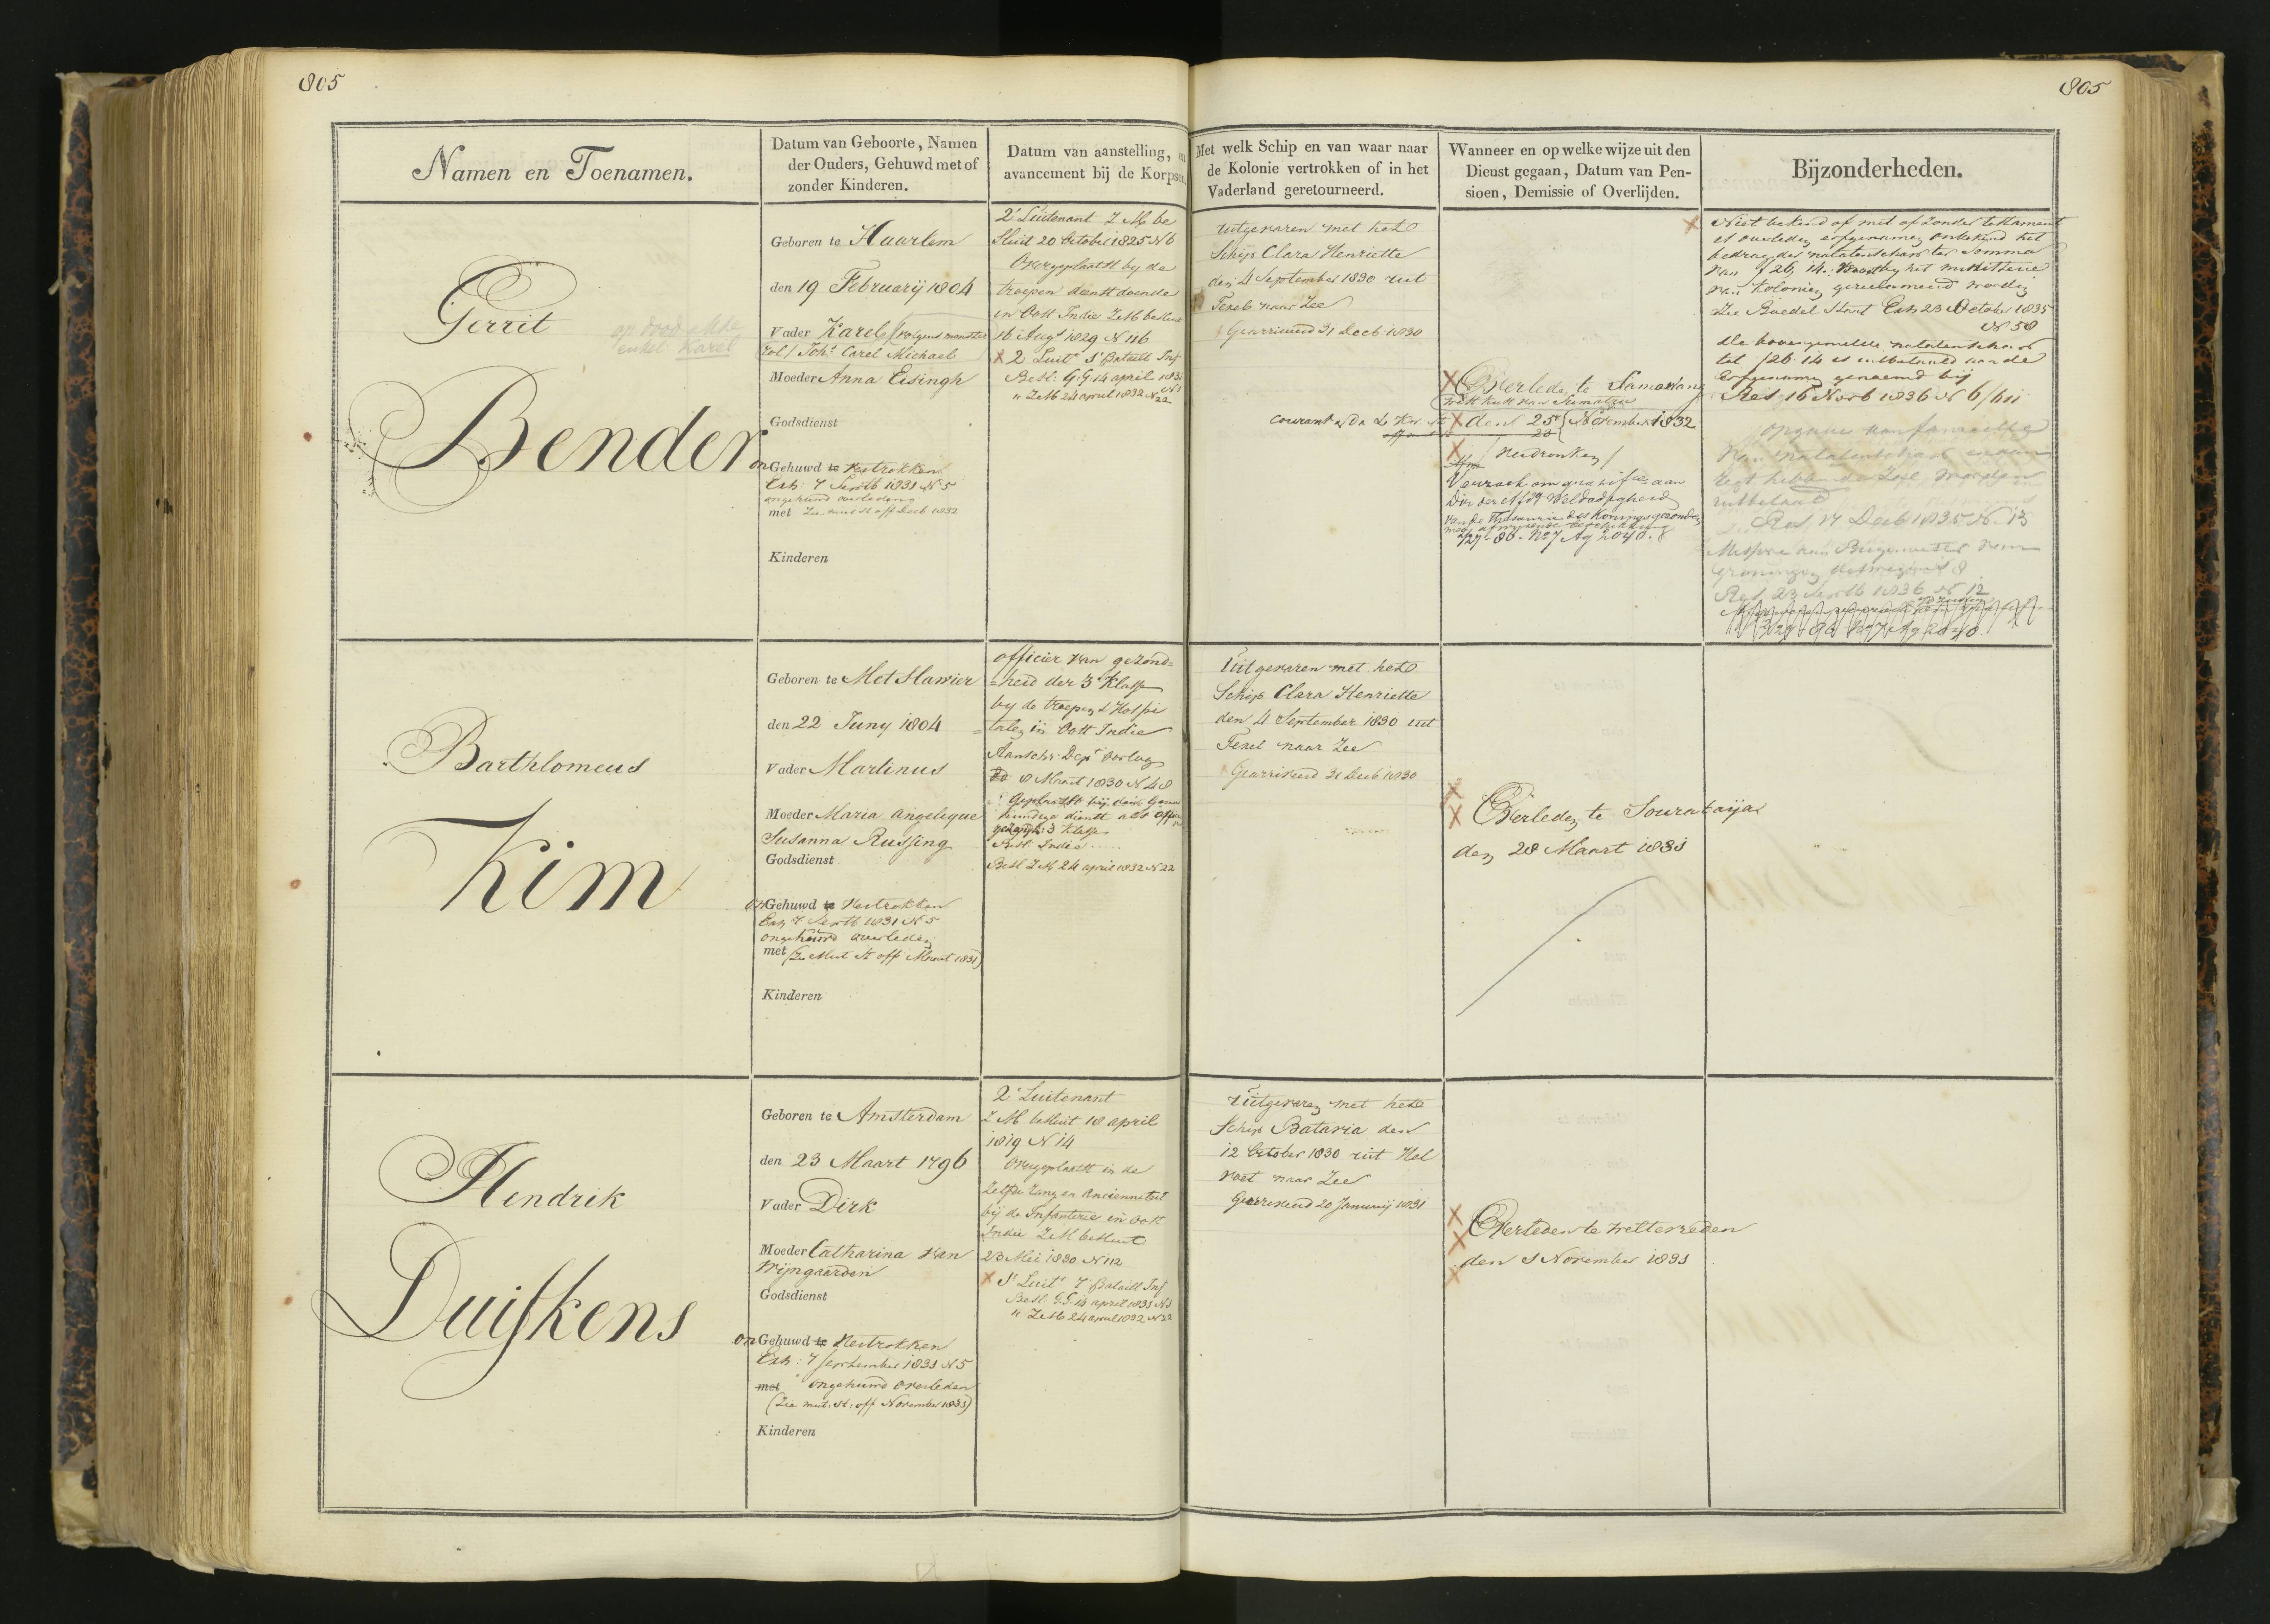 805
805
Namen en Toenamen.
Datum van Geboorte, Namen
der Ouders, Gehuwd met of
zonder Kinderen.
Datum van aanstelling, en
avancement bij de Korpsen.
Met welk Schip en van waar naar
de Kolonie vertrokken of in het
Vaderland geretourneerd.
Wanneer en op welke wijze uit den
Dienst gegaan, Datum van Pen-
sioen, Demissie of Overlijden.
Bijzonderheden.
Gerrit
op dood akte
enkel Karel
Bender
Geboren te Haarlem
den 19 Februarij 1804
Vader Karel (volgens monster
rol) Joh. Carel Michael
Moeder Anna Eisingh
Godsdienst
onGehuwd te vertrokken
Exh: 7 Septb 1831 N 5
ongehuwd overleden
met Zie mut st off Decb 1832
Kinderen
2e Luitenant Z M be
sluit 20 October 1825 N 6
Overgeplaatst by de
troepen dienstdoende
in Oost Indie Z M besluit
16 Aug 1829 N 116
2 Luitt 1e Bataill Inf
Besl: G.G. 14 april 1831 N 1
" Z M 24 april 1832 N 22
Uitgevaren met het
Schip Clara Henriette
den 4 September 1830 uit
Texel naar Zee
Gearriveerd 31 Decb 1830
Overleden te Samawang
West kust van Sumatra
den 25 November 1832
23
verdronken
Verzoek om
van de Thesaurie des Konings gezonden
2/27-86. N 7 Ag 2040.
Niet bekend of met of zonder testament
is overleden erfgenamen onbekend het
bedrag der nalatenschap ter somma
van f 26,14.
van Kolonien gereclameerd worden
Zie Boedel Staat Exh 23 October 1835
N 58
de bovengemelde nalatenschap
tot f 26.14 is uitbetaald aan de
Erfgenamen genoemd bij
Res 16 Novb 1836 N 6/611
Res 17 Decb 1835 N 13
Missive aan Burgemeester van
Groningen
Res 23 Septb 1836 N 12
Barthlomeus
Kim
Geboren te Metslawier
den 22 Juny 1804
Vader Martinus
Moeder Maria Angeleque
Susanna Russing
Godsdienst
onGehuwd te vertrokken
Exh 7 Septb 1831 N 5
ongehuwd overleden
met (Zie Mut St off Maart 1831)
Kinderen
officier van gezond=
=heid der 3e Klasse
by de troepen & Hospi
talen in Oost Indie
Aanschr. Dept Oorlog
8 Maart 1830 N 48
Geplaatst bij den Genees
kundige dienst als off
gezondh: 3 Klasse
Besl. Indie .....
Besl Z M 24 april 1832 N 22
Uitgevaren met het
Schip Clara Henriette
den 4 September 1830 uit
Texel naar Zee
Gearriveerd 31 Decb 1830
Overleden te Sourabaija
den 28 Maart 1831
Hendrik
Duiskens
Geboren te Amsterdam
den 23 Maart 1796
Vader Dirk
Moeder Catharina van
Wijngaarden
Godsdienst
onGehuwd te vertrokken
Exh: 7 September 1831 N 5
met ongehuwd overleden
(Zie mut: st: off November 1831)
Kinderen
2e Luitenant
Z M besluit 18 april
1819 N 14
Overgeplaatst in de
zelfde rang en ancienneteit
bij de Infanterie in Oost
Indie Z M besluit
23 Mei 1830 N 112
1e Luitt 7 Bataill Inf
Besl. G.G. 14 april 1831 N 1
" Z M 24 april 1832 N 22
Uitgevaren met het
Schip Batavia den
12 October 1830 uit Hel
voet naar Zee
Gearriveerd 20 Januarij 1831
Overleden te Weltevreden
den 1 November 1831